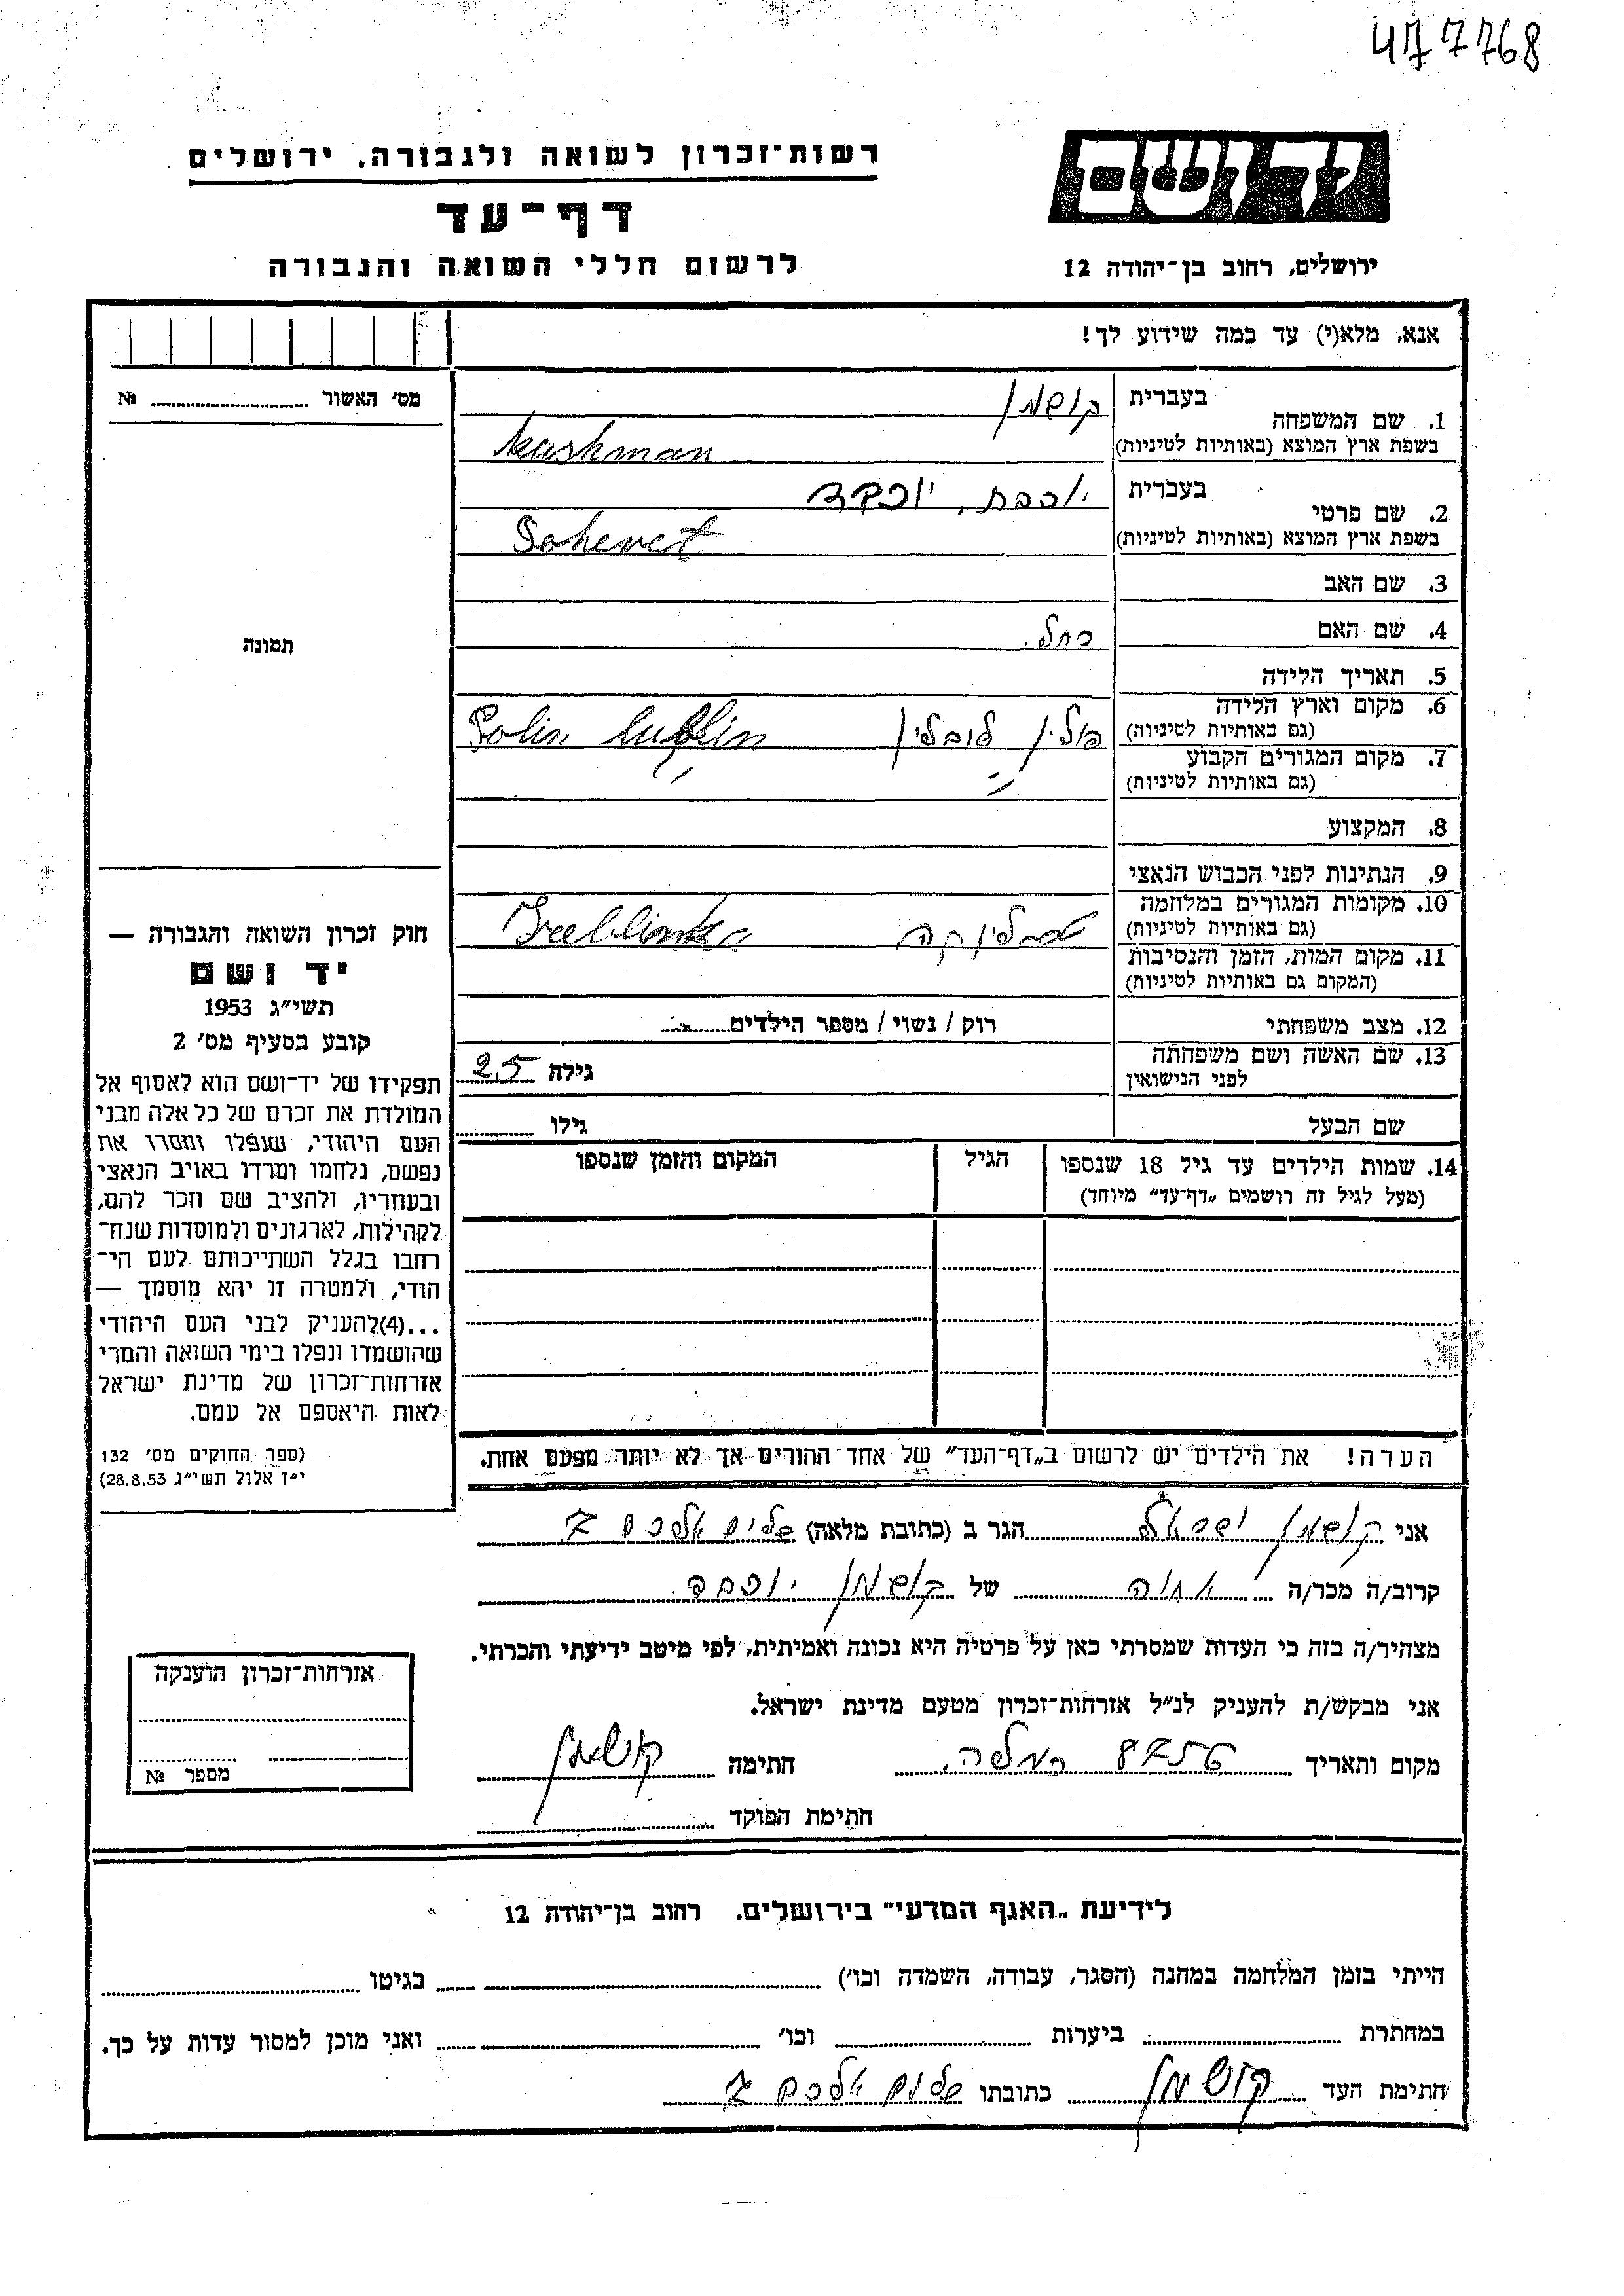 477768
רשות-זכרון לשואה ולגבורה. ירושלים
ידושם
דף-עד
לרשום חללי השואה והגבורה
ירושלים, רחוב בן-יהודה 12
אנא, מלא(י) עד כמה שידוע לך!
1. שם המשפחה
בעברית
קושמן
בשפת ארץ המוצא (באותיות לטיניות)
kushman
2. שם פרטי
בעברית
יוכבת, יוכבד
בשפת ארץ המוצא (באותיות לטיניות)
3. שם האב
4. שם האם
רחל.
5. תאריך הלידה
6. מקום וארץ הלידה
(גם באותיות לטיניות)
פולין לובלין Polin lublin
7. מקום המגורים הקבוע
(גם באותיות לטיניות)
״ ״
8. המקצוע
9. הנתינות לפני הכבוש הנאצי
10. מקומות המגורים במלחמה
(גם באותיות לטיניות)
טרבלינקה Treblinka
11. מקום המות, הזמן והנסיבות
(המקום גם באותיות לטיניות)
12. מצב משפחתי
רוק / נשוי / מספר הילדים
13. שם האשה ושם משפחתה
לפני הנישואין
גילה 25
שם הבעל
גילו
14. שמות הילדים עד גיל 18 שנספו
(מעל לגיל זה רושמים „דף-עד״ מיוחד)
הגיל
המקום והזמן שנספו
הערה! את הילדים יש לרשום ב„דף-העד״ של אחד ההורים אך לא יותר מפעם אחת.
מס׳ האשור № 
תמונה
חוק זכרון השואה והגבורה —
יד ושם
תשי״ג 1953
קובע בסעיף מס׳ 2
תפקידו של יד-ושם הוא לאסוף אל
המולדת את זכרם של כל אלה מבני
העם היהודי, שנפלו ומסרו את
נפשם, נלחמו ומרדו באויב הנאצי
ובעוזריו, ולהציב שם וזכר להם,
לקהילות, לארגונים ולמוסדות שנח-
רבו בגלל השתייכותם לעם הי-
הודי, ולמטרה זו יהא מוסמך —
...(4)להעניק לבני העם היהודי
שהושמדו ונפלו בימי השואה והמרי
אזרחות-זכרון של מדינת ישראל
לאות היאספם אל עמם.
(ספר החוקים מס׳ 132
י״ז אלול תשי״ג 28.8.53)
אני קושמן ישראל הגר ב (כתובת מלאה) שלום עליכם 7
קרוב/ה מכר/ה אחיה של קושמן יוכבד.
מצהיר/ה בזה כי העדות שמסרתי כאן על פרטיה היא נכונה ואמיתית, לפי מיטב ידיעתי והכרתי.
אני מבקש/ת להעניק לנ״ל אזרחות-זכרון מטעם מדינת ישראל.
מקום ותאריך רמלה. חתימה קושמן
חתימת הפוקד
אזרחות-זכרון הוענקה
מספר №
לידיעת „האגף המדעי״ בירושלים. רחוב בן-יהודה 12
הייתי בזמן המלחמה במחנה (הסגר, עבודה, השמדה וכו׳) בגיטו
במחתרת ביערות וכו׳ ואני מוכן למסור עדות על כך.
חתימת העד קושמן כתובתו שלום עליכם 7